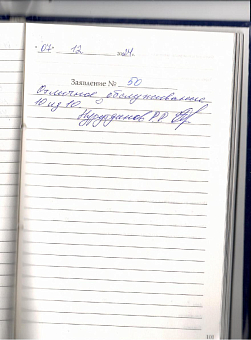 07. 12 2024.
Заявление № 50
Отличное обслуживание
10 из 10.
Нурутдинов Р.Р.
101